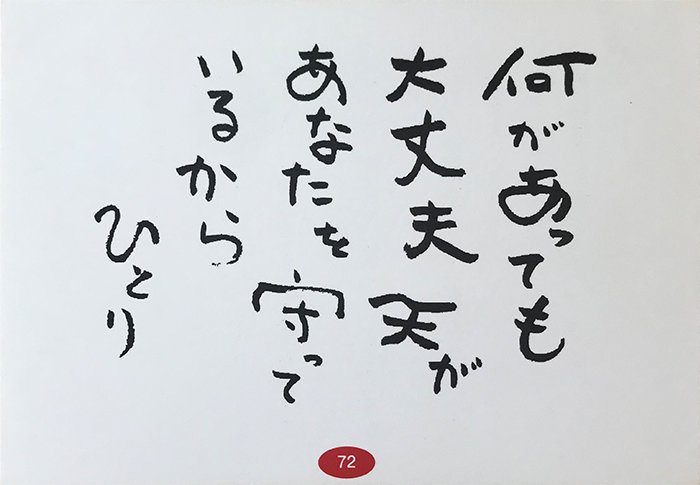 何があっても
大丈夫天が
あなたを守って
いるから
ひとり
72